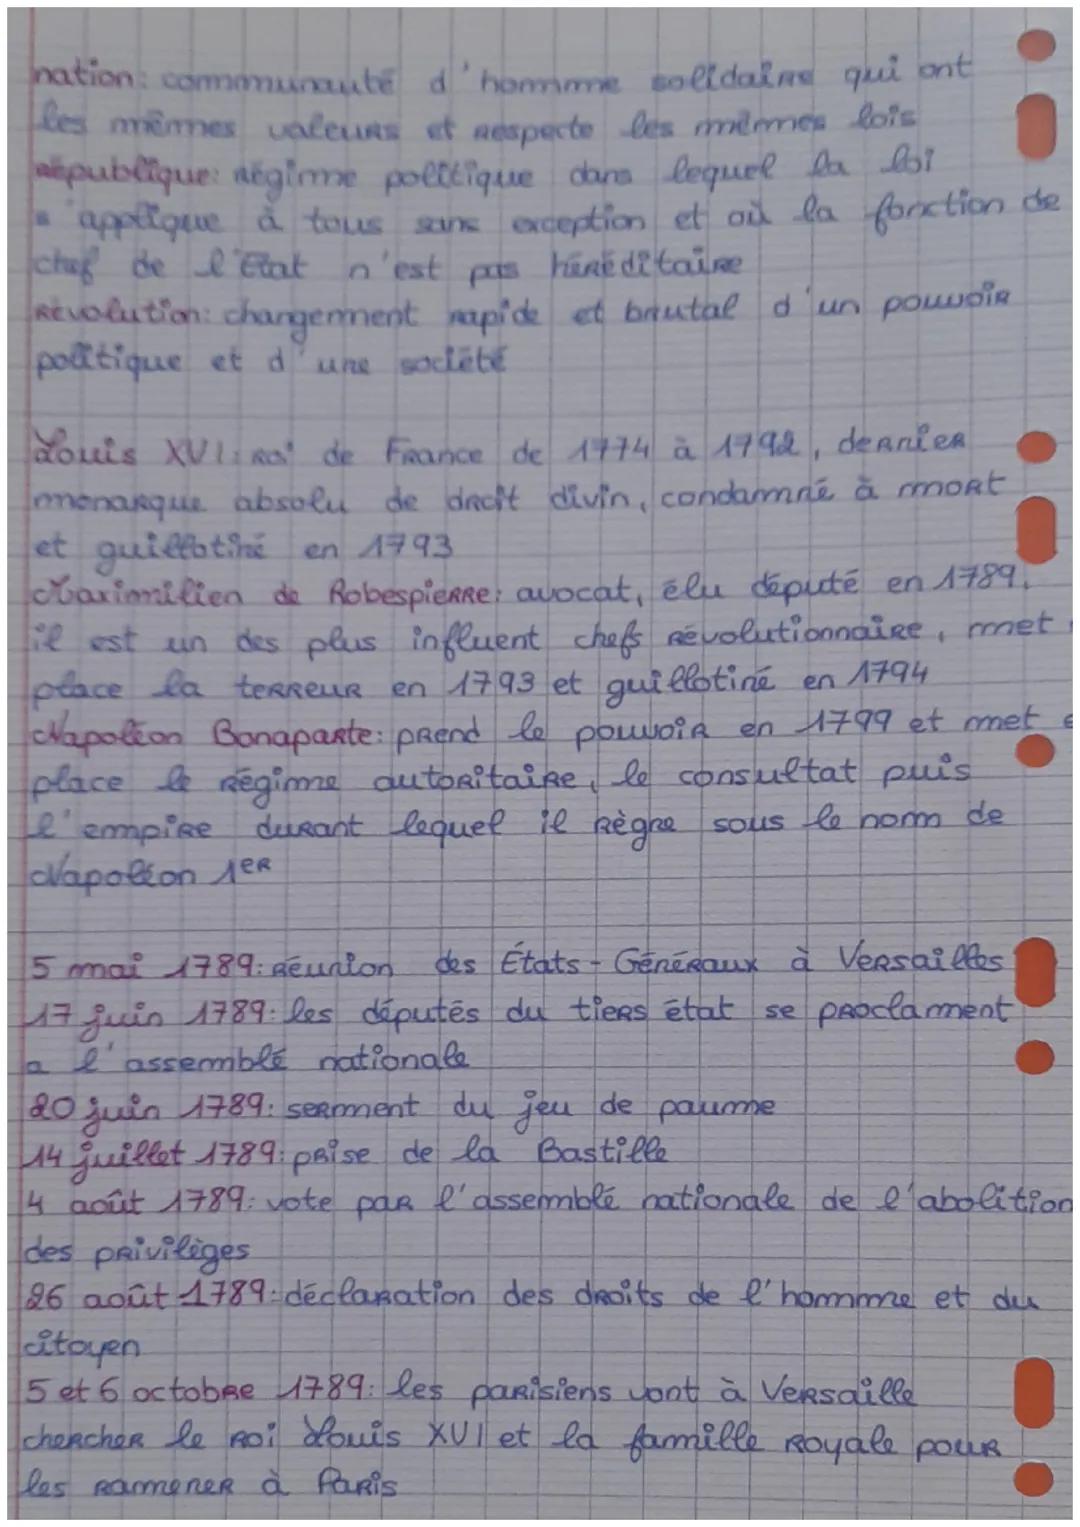 nation: communauté d'homme solidaire qui ont
les mêmes valeurs et respecte les mêmes lois
république: régime politique dans lequel la loi
s'applique à tous sans exception et où la fonction de
chef de l'État n'est pas héréditaire
révolution: changement rapide et brutal d'un pouvoir
politique et d'une société
Louis XVI: roi de France de 1774 à 1792, dernier
monarque absolu de droit divin, condamné à mort
et guillotiné en 1793
Maximilien de Robespierre: avocat, élu député en 1789.
il est un des plus influent chefs révolutionnaire, met
place la terreur en 1793 et guillotiné en 1794
Napoléon Bonaparte: prend le pouvoir en 1799 et met e
place le régime autoritaire, le consultat puis
l'empire durant lequel il règne sous le nom de
Napoléon 1er
5 mai 1789: réunion des États-Généraux à Versailles
17 juin 1789: les députés du tiers état se proclament
a l'assemblé nationale
20 juin 1789: serment du jeu de paume
14 juillet 1789: prise de la Bastille
4 août 1789: vote par l'assemblé nationale de l'abolition
des privilèges
26 août 1789: déclaration des droits de l'homme et du
citoyen
5 et 6 octobre 1789: les parisiens vont à Versaille
chercher le roi Louis XVI et la famille royale pour
les ramener à Paris